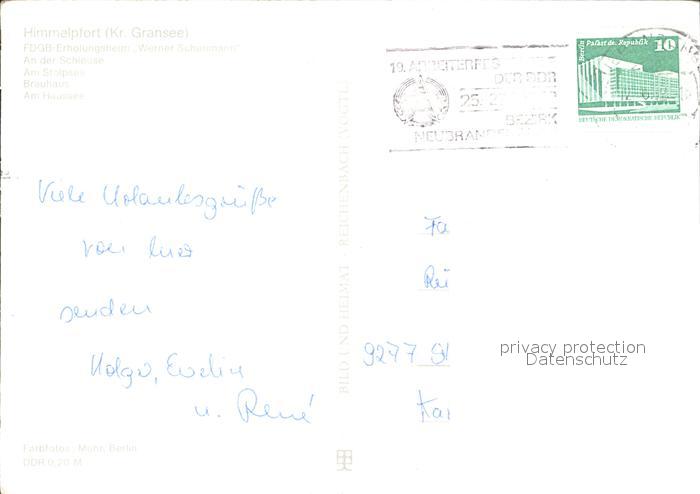 Himmelpfort (Kr. Gransee)
FDGB-Erholungsheim „Werner Schunmann"
An der Schleuse
Am Stolpsee
Brauhaus
Am Haussee
Viele Urlaubsgrüße
von hier
senden
Holger, Evelin
u. René
Farbfotos: Mohr, Berlin
DDR 0,20 M
BILD UND HEIMAT · REICHENBACH (VOGTL)
19. ARBEITERFES
DER DDR
25.
BEZIRK
NEUBRANDE
Berlin Palast de. Republik 10
DEUTSCHE DEMOKRATISCHE REPUBLIK
Fa
9277
Kar
privacy protection
Datenschutz